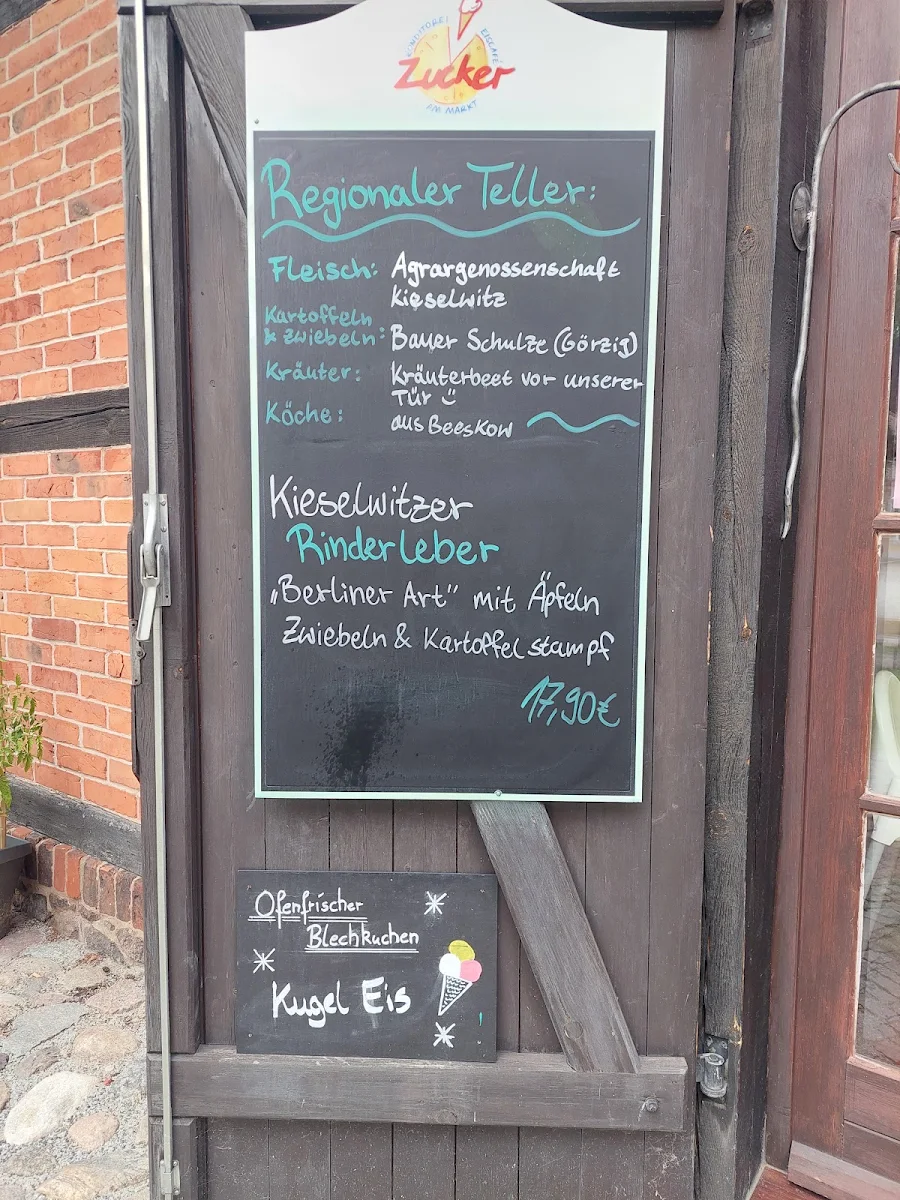 KONDITOREI EISCAFÉ
Zucker
AM MARKT
Regionaler Teller:
Fleisch: Agrargenossenschaft
Kieselwitz
Kartoffeln
& Zwiebeln: Bauer Schulze (Görzig)
Kräuter: Kräuterbeet vor unserer
Tür
Köche: aus Beeskow
Kieselwitzer
Rinderleber
„Berliner Art" mit Äpfeln
Zwiebeln & Kartoffelstampf
17,90€
Ofenfrischer
Blechkuchen
Kugel Eis